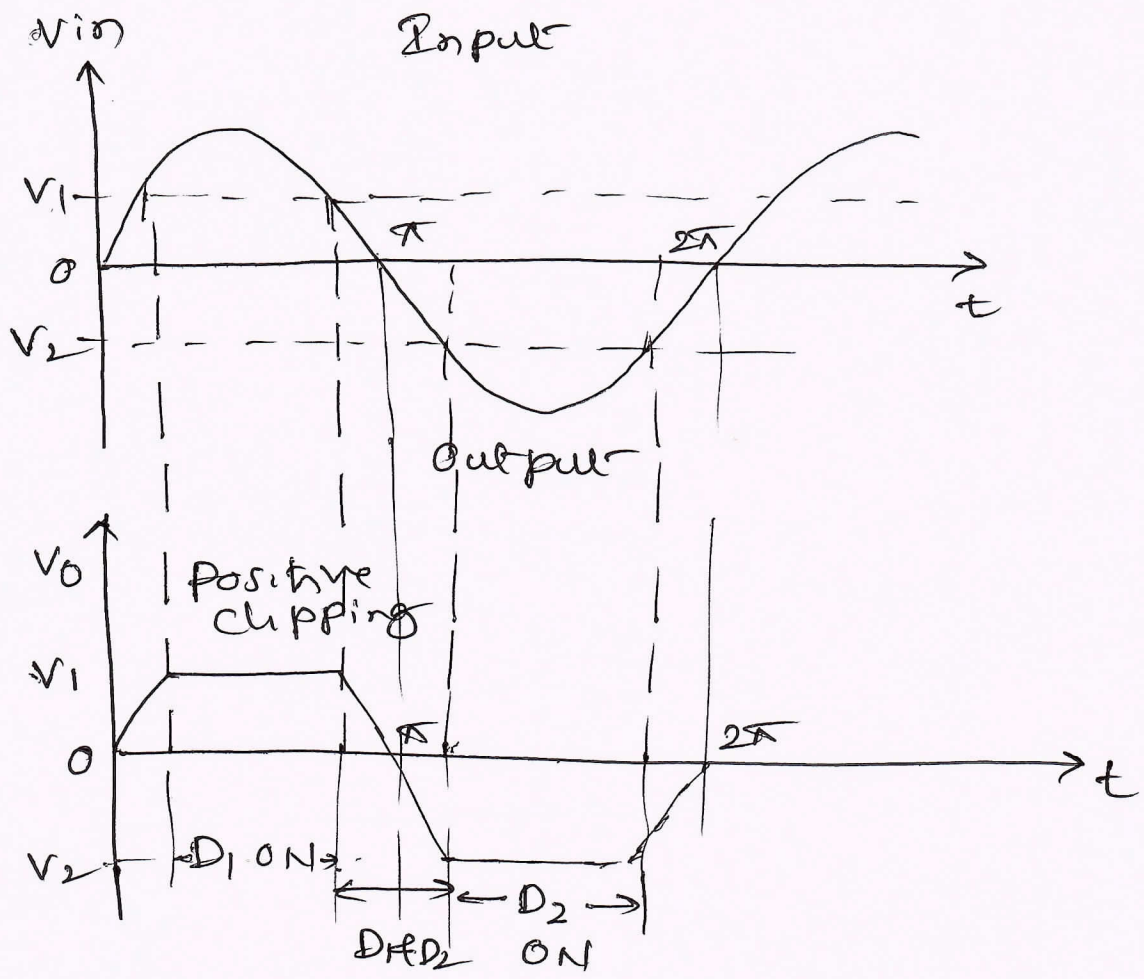 Vin
Input
V1
π
2π
0
t
V2
Output
V0
Positive
clipping
V1
π
2π
0
t
V2
D1 ON
D2
ON